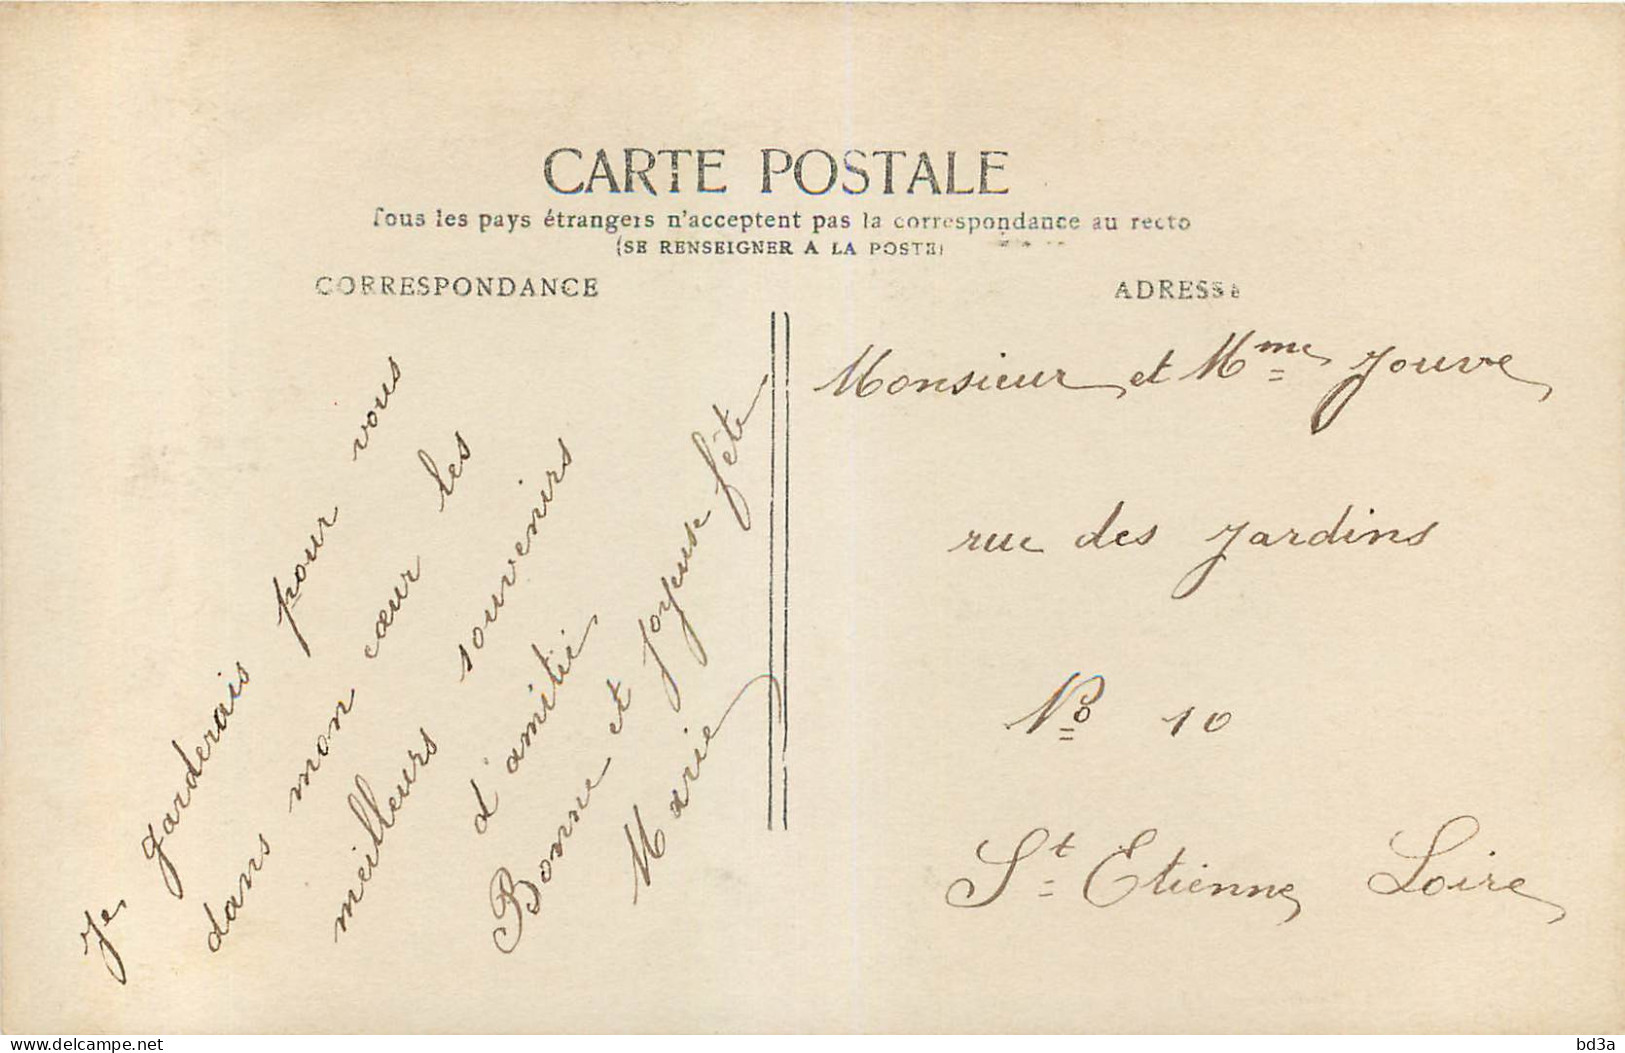 CARTE POSTALE
Tous les pays étrangers n'acceptent pas la correspondance au recto
(SE RENSEIGNER A LA POSTE)
CORRESPONDANCE
Je garderais pour vous
dans mon cœur les
meilleurs souvenirs
d'amitié
Bonne et joyeuse fête
Marie
ADRESSE
Monsieur et Mme Jouve
rue des Jardins
No 10
St Etienne Loire
delcampe.net
bd3a